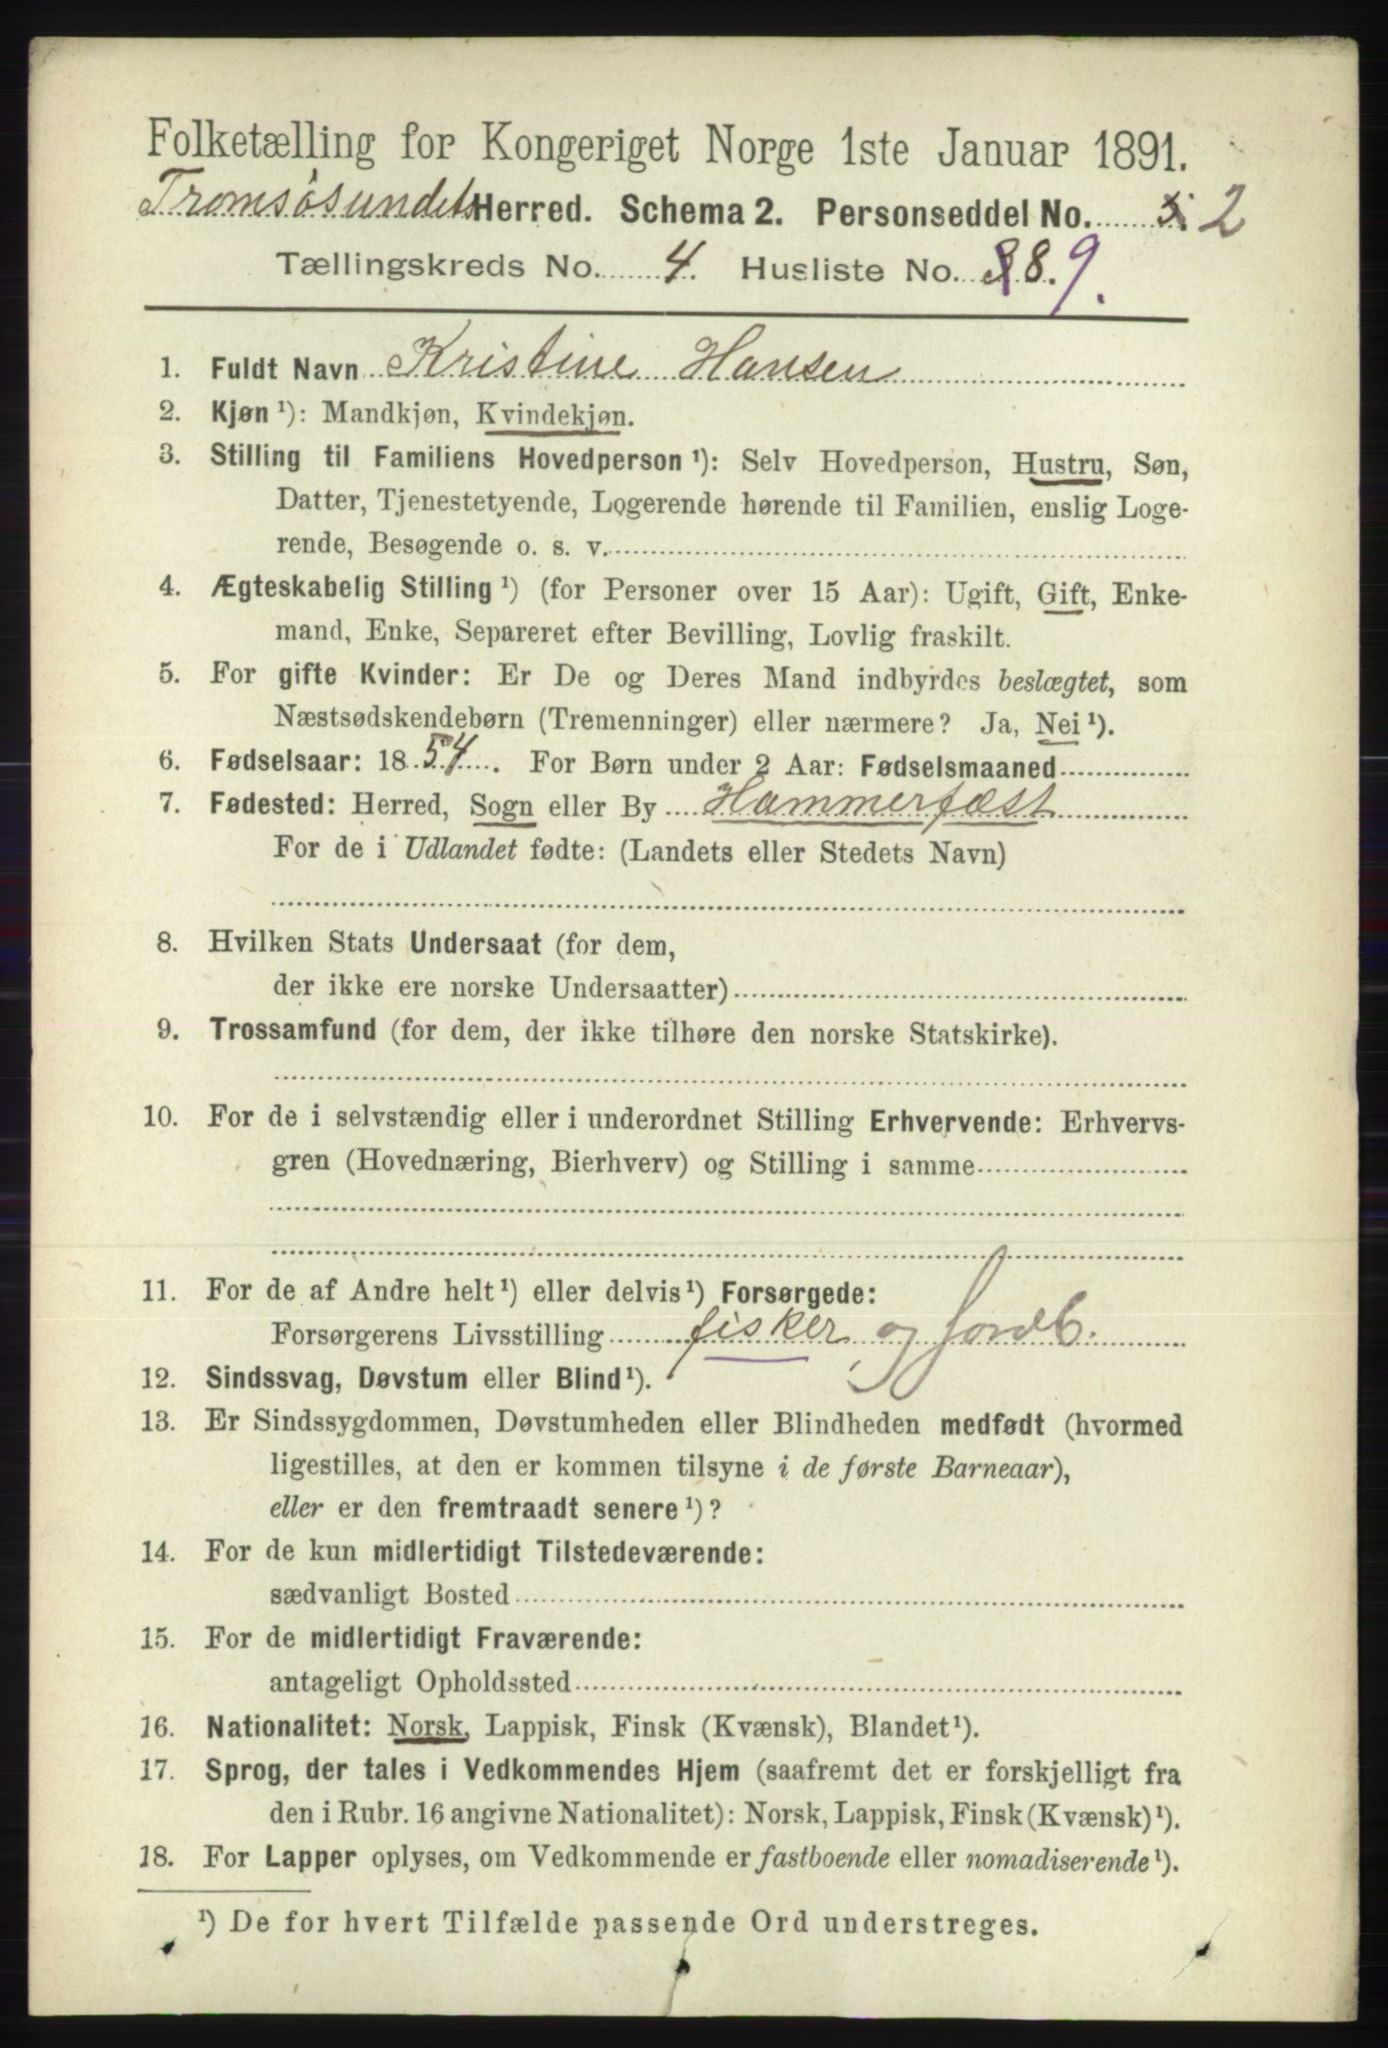 Folketælling for Kongeriget Norge 1ste Januar 1891.
Tromsösundets Herred. Schema 2. Personseddel No. 2
Tællingskreds No. 4. Husliste No. 88. 9.
1. Fuldt Navn Kristine Hansen
2. Kjøn ¹): Mandkjøn, Kvindekjøn.
3. Stilling til Familiens Hovedperson ¹): Selv Hovedperson, Hustru, Søn,
Datter, Tjenestetyende, Logerende hørende til Familien, enslig Loge-
rende, Besøgende o. s. v.
4. Ægteskabelig Stilling ¹) (for Personer over 15 Aar): Ugift, Gift, Enke-
mand, Enke, Separeret efter Bevilling, Lovlig fraskilt.
5. For gifte Kvinder: Er De og Deres Mand indbyrdes beslægtet, som
Næstsødskendebørn (Tremenninger) eller nærmere? Ja, Nei ¹).
6. Fødselsaar: 1854. For Børn under 2 Aar: Fødselsmaaned
7. Fødested: Herred, Sogn eller By Hammerfæst
For de i Udlandet fødte: (Landets eller Stedets Navn)
8. Hvilken Stats Undersaat (for dem,
der ikke ere norske Undersaatter)
9. Trossamfund (for dem, der ikke tilhøre den norske Statskirke).
10. For de i selvstændig eller i underordnet Stilling Erhvervende: Erhvervs-
gren (Hovednæring, Bierhverv) og Stilling i samme
11. For de af Andre helt ¹) eller delvis ¹) Forsørgede:
Forsørgerens Livsstilling fisker og jordb.
12. Sindssvag, Døvstum eller Blind ¹).
13. Er Sindssygdommen, Døvstumheden eller Blindheden medfødt (hvormed
ligestilles, at den er kommen tilsyne i de første Barneaar),
eller er den fremtraadt senere ¹)?
14. For de kun midlertidigt Tilstedeværende:
sædvanligt Bosted
15. For de midlertidigt Fraværende:
antageligt Opholdssted
16. Nationalitet: Norsk, Lappisk, Finsk (Kvænsk), Blandet ¹).
17. Sprog, der tales i Vedkommendes Hjem (saafremt det er forskjelligt fra
den i Rubr. 16 angivne Nationalitet): Norsk, Lappisk, Finsk (Kvænsk) ¹).
18. For Lapper oplyses, om Vedkommende er fastboende eller nomadiserende ¹).
¹) De for hvert Tilfælde passende Ord understreges.